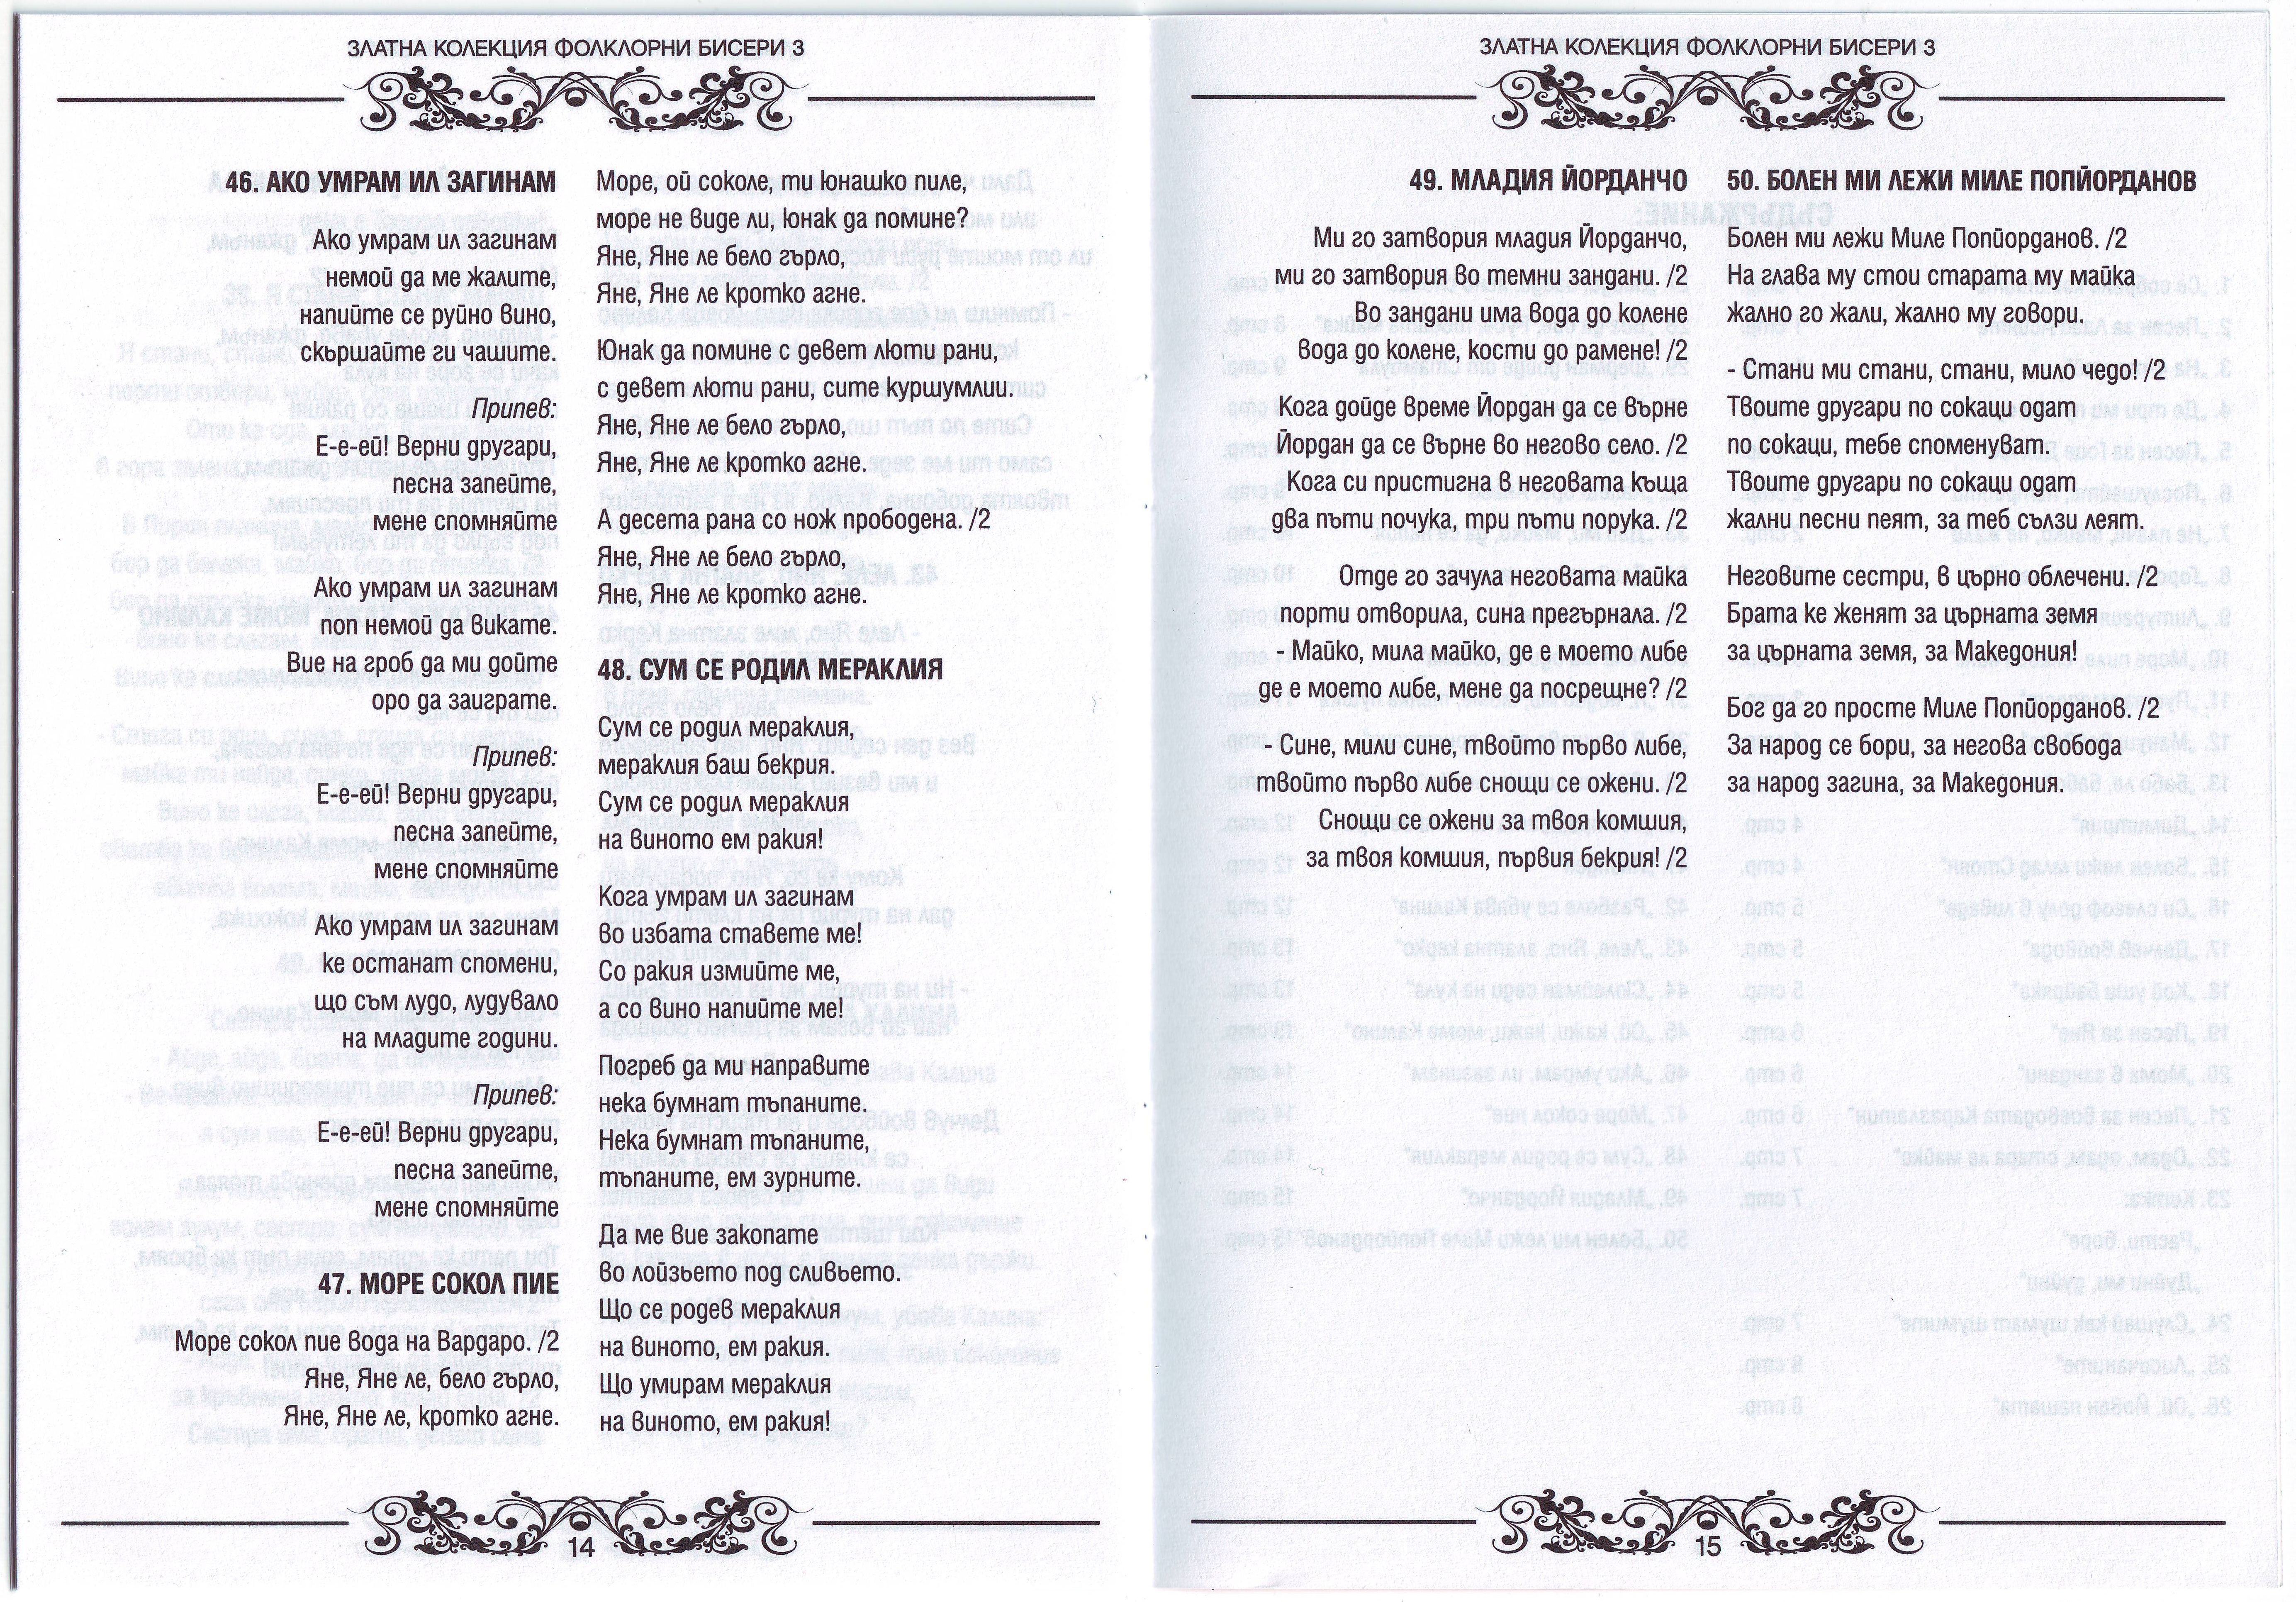 ЗЛАТНА КОЛЕКЦИЯ ФОЛКЛОРНИ БИСЕРИ 3
46. АКО УМРАМ ИЛ ЗАГИНАМ
Ако умрам ил загинам
немой да ме жалите,
напийте се руйно вино,
скършайте ги чашите.
Припев:
Е-е-ей! Верни другари,
песна запейте,
мене спомняйте
Ако умрам ил загинам
поп немой да викате.
Вие на гроб да ми дойте
оро да заиграте.
Припев:
Е-е-ей! Верни другари,
песна запейте,
мене спомняйте
Ако умрам ил загинам
ке останат спомени,
що съм лудо, лудувало
на младите години.
Припев:
Е-е-ей! Верни другари,
песна запейте,
мене спомняйте
47. МОРЕ СОКОЛ ПИЕ
Море сокол пие вода на Вардаро. /2
Яне, Яне ле, бело гърло,
Яне, Яне ле, кротко агне.
Море, ой соколе, ти юнашко пиле,
море не виде ли, юнак да помине?
Яне, Яне ле бело гърло,
Яне, Яне ле кротко агне.
Юнак да помине с девет люти рани,
с девет люти рани, сите куршумлии.
Яне, Яне ле бело гърло,
Яне, Яне ле кротко агне.
А десета рана со нож прободена. /2
Яне, Яне ле бело гърло,
Яне, Яне ле кротко агне.
48. СУМ СЕ РОДИЛ МЕРАКЛИЯ
Сум се родил мераклия,
мераклия баш бекрия.
Сум се родил мераклия
на виното ем ракия!
Кога умрам ил загинам
во избата ставете ме!
Со ракия измийте ме,
а со вино напийте ме!
Погреб да ми направите
нека бумнат тъпаните.
Нека бумнат тъпаните,
тъпаните, ем зурните.
Да ме вие закопате
во лойзьето под сливьето.
Що се родев мераклия
на виното, ем ракия.
Що умирам мераклия
на виното, ем ракия!
14
ЗЛАТНА КОЛЕКЦИЯ ФОЛКЛОРНИ БИСЕРИ 3
49. МЛАДИЯ ЙОРДАНЧО
Ми го затвория младия Йорданчо,
ми го затвория во темни зандани. /2
Во зандани има вода до колене
вода до колене, кости до рамене! /2
Кога дойде време Йордан да се върне
Йордан да се върне во негово село. /2
Кога си пристигна в неговата къща
два пъти почука, три пъти порука. /2
Отде го зачула неговата майка
порти отворила, сина прегърнала. /2
- Майко, мила майко, де е моето либе
де е моето либе, мене да посрещне? /2
- Сине, мили сине, твойто първо либе,
твойто първо либе снощи се ожени. /2
Снощи се ожени за твоя комшия,
за твоя комшия, първия бекрия! /2
50. БОЛЕН МИ ЛЕЖИ МИЛЕ ПОПЙОРДАНОВ
Болен ми лежи Миле Попйорданов. /2
На глава му стои старата му майка
жално го жали, жално му говори.
- Стани ми стани, стани, мило чедо! /2
Твоите другари по сокаци одат
по сокаци, тебе споменуват.
Твоите другари по сокаци одат
жални песни пеят, за теб сълзи леят.
Неговите сестри, в църно облечени. /2
Брата ке женят за църната земя
за църната земя, за Македония!
Бог да го просте Миле Попйорданов. /2
За народ се бори, за негова свобода
за народ загина, за Македония.
15